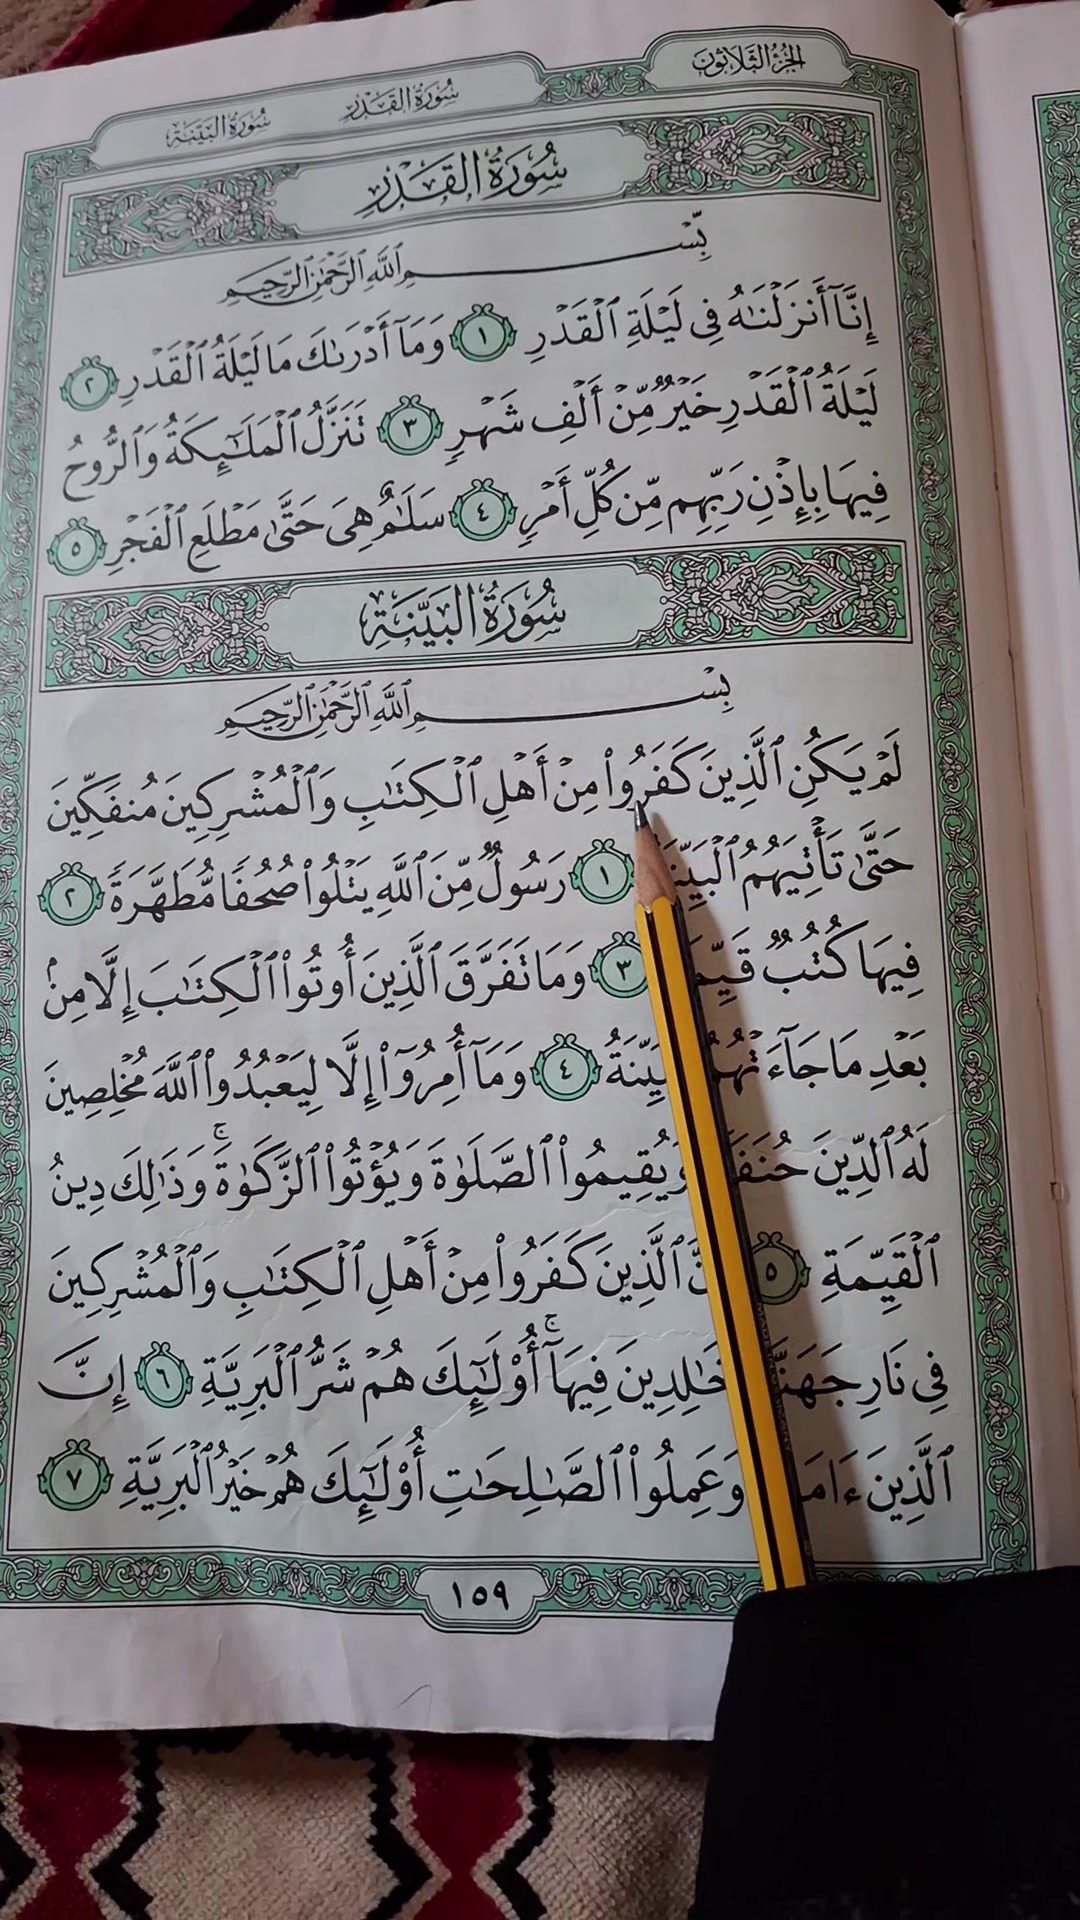 الجزء الثلاثون
سورة القدر
سورة البينة
سُورَةُ القَدْرِ
بِسْمِ ٱللَّهِ ٱلرَّحْمَٰنِ ٱلرَّحِيمِ
إِنَّآ أَنزَلْنَٰهُ فِى لَيْلَةِ ٱلْقَدْرِ ١ وَمَآ أَدْرَىٰكَ مَا لَيْلَةُ ٱلْقَدْرِ ٢
لَيْلَةُ ٱلْقَدْرِ خَيْرٌ مِّنْ أَلْفِ شَهْرٍ ٣ تَنَزَّلُ ٱلْمَلَٰٓئِكَةُ وَٱلرُّوحُ
فِيهَا بِإِذْنِ رَبِّهِم مِّن كُلِّ أَمْرٍ ٤ سَلَٰمٌ هِىَ حَتَّىٰ مَطْلَعِ ٱلْفَجْرِ ٥
سُورَةُ البَيِّنَةِ
بِسْمِ ٱللَّهِ ٱلرَّحْمَٰنِ ٱلرَّحِيمِ
لَمْ يَكُنِ ٱلَّذِينَ كَفَرُوا۟ مِنْ أَهْلِ ٱلْكِتَٰبِ وَٱلْمُشْرِكِينَ مُنفَكِّينَ
حَتَّىٰ تَأْتِيَهُمُ ١ رَسُولٌ مِّنَ ٱللَّهِ يَتْلُوا۟ صُحُفًا مُّطَهَّرَةً ٢
فِيهَا كُتُبٌ ٣ وَمَا تَفَرَّقَ ٱلَّذِينَ أُوتُوا۟ ٱلْكِتَٰبَ إِلَّا مِنۢ
بَعْدِ مَا ٤ وَمَآ أُمِرُوٓا۟ إِلَّا لِيَعْبُدُوا۟ ٱللَّهَ مُخْلِصِينَ
لَهُ ٱلدِّينَ وَيُقِيمُوا۟ ٱلصَّلَوٰةَ وَيُؤْتُوا۟ ٱلزَّكَوٰةَ ۚ وَذَٰلِكَ دِينُ
ٱلْقَيِّمَةِ ٥ ٱلَّذِينَ كَفَرُوا۟ مِنْ أَهْلِ ٱلْكِتَٰبِ وَٱلْمُشْرِكِينَ
فِى نَارِ خَٰلِدِينَ فِيهَآ ۚ أُو۟لَٰٓئِكَ هُمْ شَرُّ ٱلْبَرِيَّةِ ٦ إِنَّ
ٱلَّذِينَ وَعَمِلُوا۟ ٱلصَّٰلِحَٰتِ أُو۟لَٰٓئِكَ هُمْ خَيْرُ ٱلْبَرِيَّةِ ٧
١٥٩